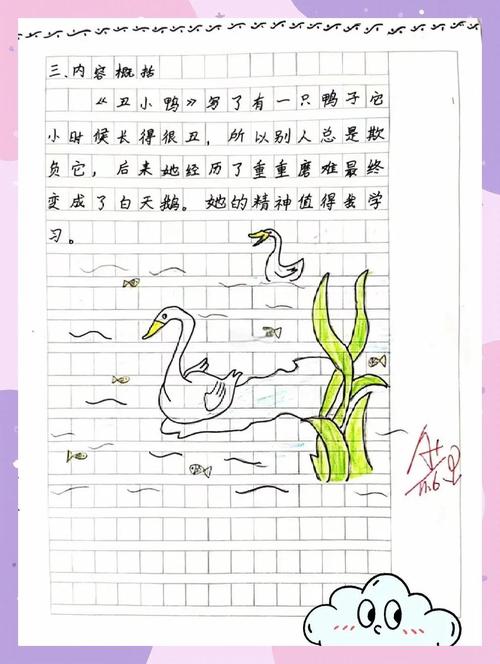 三、内容概括
《丑小鸭》写了有一只鸭子它
小时候长得很丑，所以别人总是欺
负它，后来她经历了重重磨难最终
变成了白天鹅。她的精神值得我学
习。
A+
11.6